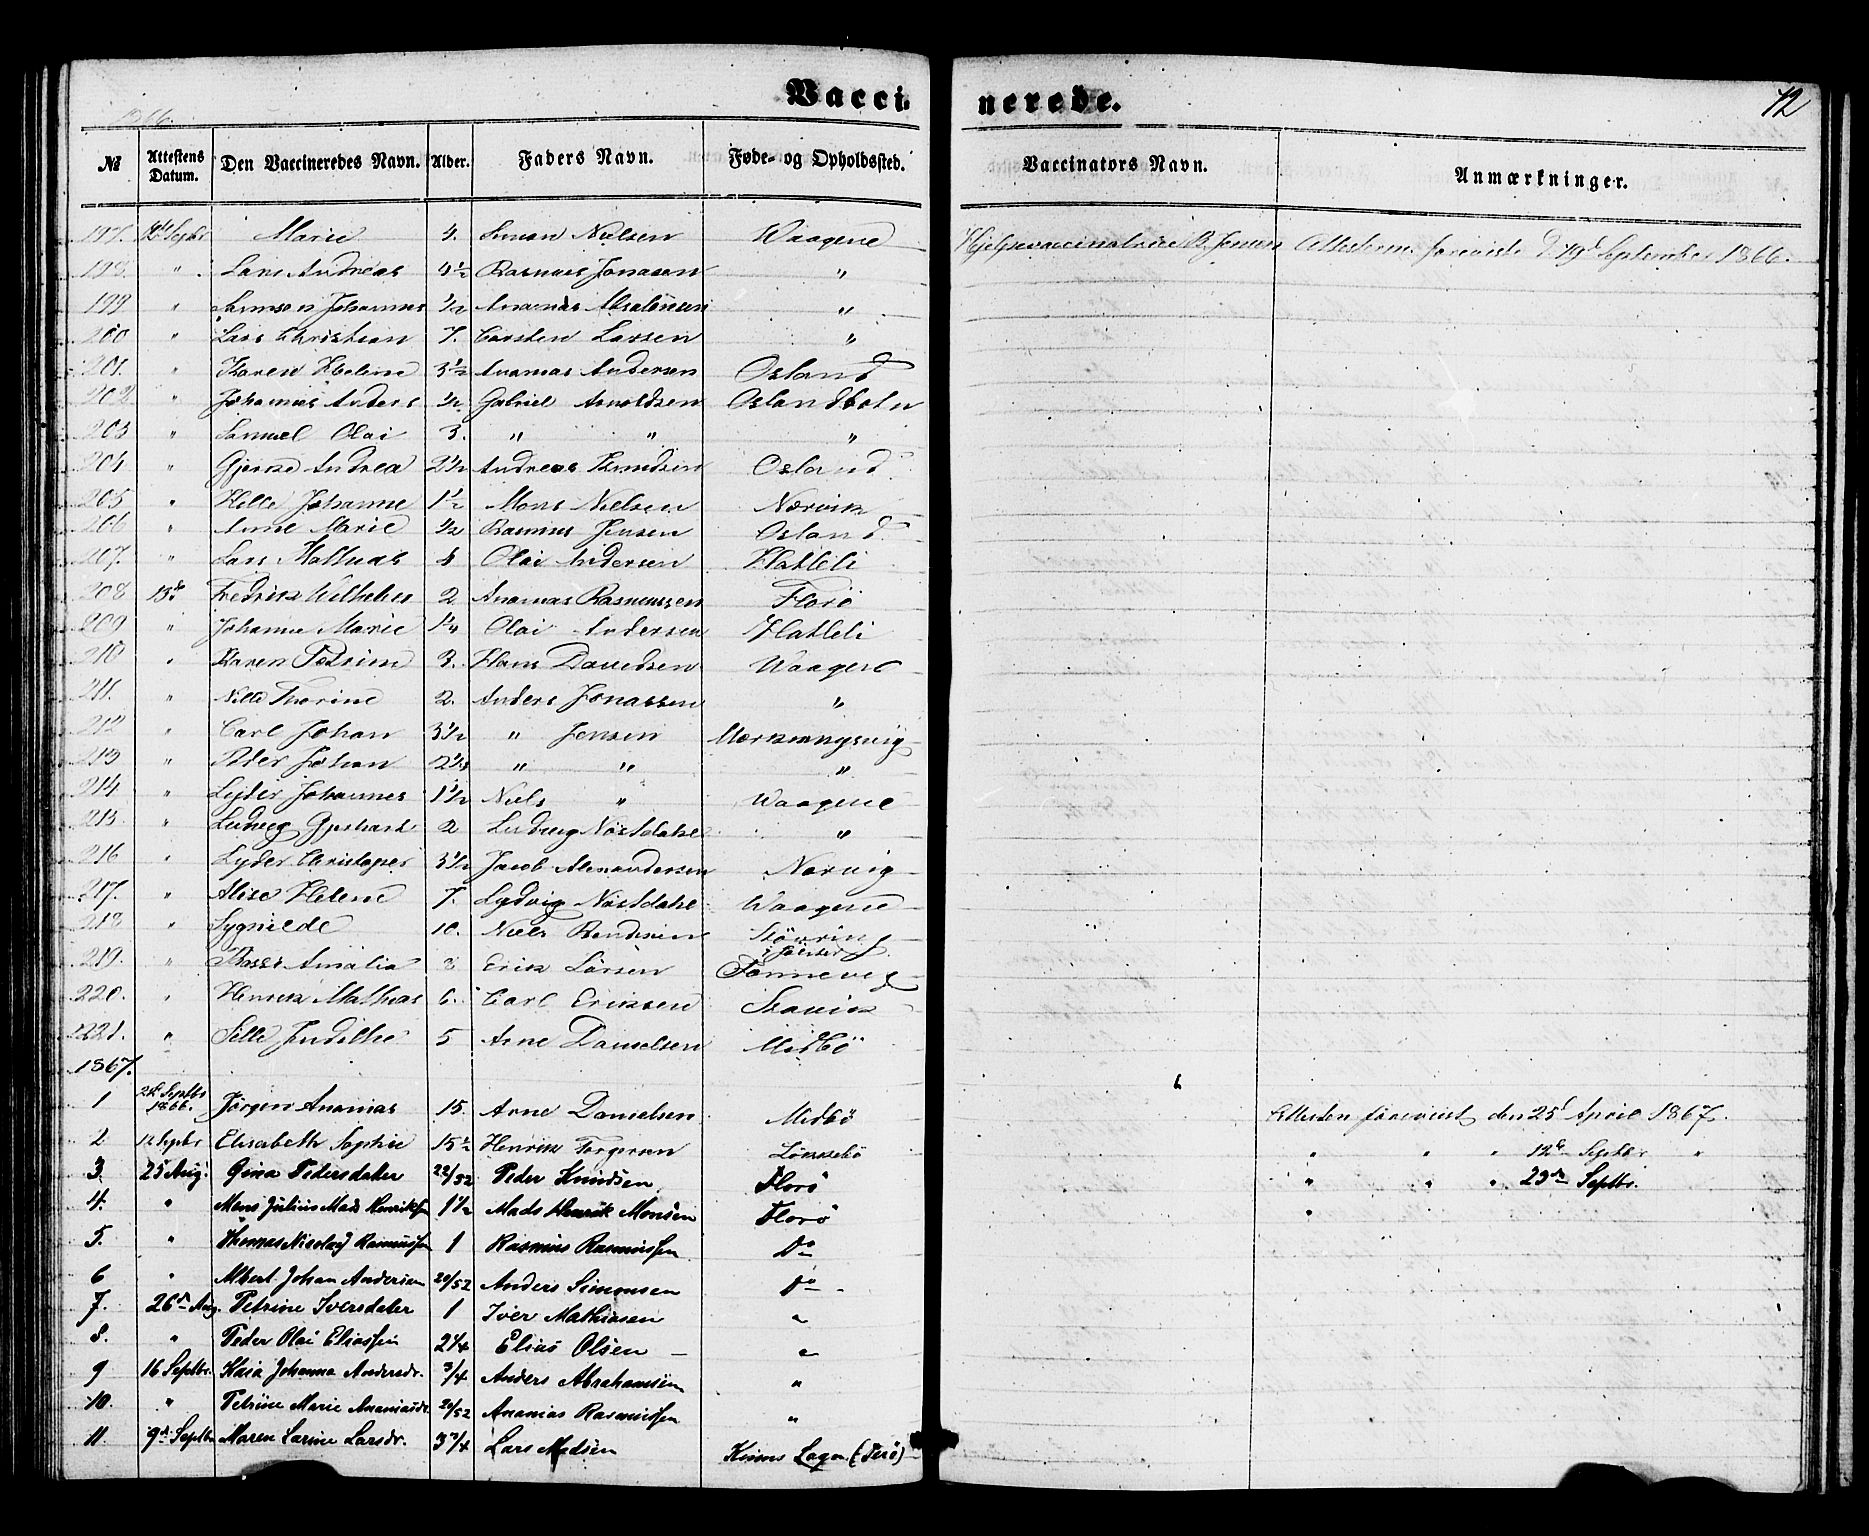 Vaccinerede. 72
1866.
№ Attestens Datum. Den Vaccineredes Navn. Alder. Faders Navn. Føde- og Opholdssted. Vaccinators Navn. Anmærkninger.
197. 12te Septbr Marie 4. Simon Nielsen Waagene Hjelpevaccinatrice B. Jensen Attesterne foreviste d 19d September 1866.
198. " Lars Andreas Rasmus Jonasen "
199 " Samson Johannes 1/2 Ananias Absalonsen "
200 " Lars Christian 7. Carsten Larsen "
201. " Karen Helene 3 1/2 Ananias Andersen Osland
202 " Johannes Anders 1/2 Gabriel Arnoldsen Oslandbotn
203 " Samuel Olai 3. " " "
204 " Gjerne Andrea 2 1/2 Andreas Knudsen Osland
205 " Helle Johanne 1 1/2 Mons Nielsen Nærvik
206 " Anne Marie 1/2 Rasmus Jensen Osland
207. " Lars Mathias Olai Andersen Hatleli
208 13de Fredrik Wilhelm 2 Ananias Rasmussen Florö
209 " Johanne Marie 1 1/4 Olai Andersen Hatleli
210 " Karen Petrine 3. Hans Davidsen Waagene
211. " Nille Thorine 2. Anders Jonassen "
212 " Carl Johan 3 1/2 " Jensen
213 " Peder Johan " " "
214 " Lyder Johannes 1 1/2 Niels " Waagene
215 " Ludvig Gjerhart 2 Ludvig Nöstdahl "
216 " Lyder Christopher 3 1/2 Jacob Alexandersen Norvig
217. " Alise Helene 7. Lydvig Nöstdahl Waagene
218 " Sygnilde 10. Niels Bendixen
219. " Amalia Erik Larsen
220. " Henrik Mathias 6. Carl Eriksen Stavik
221. " Sille Judithe 5 Arne Danielsen Midbö
1867.
1 Septbr 1866. Jörgen Ananias 15. Arne Danielsen Midbö Attesten forevist den 25d April 1867.
2 12 Septbr Elisabeth Sophie 15 1/2 Henrik Torgersen " " " 12te Septbr "
3 25 Aug. Gina Pedersdater 22/52 Peder Knudsen Florö " " " 23de Septbr.
4. " Mons Julius Mads Henriksen 1 1/2 Mads Henrik Monsen Florö "
5. " Thomas Nicolay Rasmussen 1 Rasmus Rasmussen Do
6 " Albert Johan Andersen 20/52 Anders Simonsen Do
7. 26de Aug. Petrine Iversdater 1 Iver Mathiasen "
8. " Peder Olai Eliassen 2 1/4 Elias Olsen "
9 16 Septbr. Kaia Johanna Andersdr. 3/4 Anders Abrahamsen "
10. " Petrine Marie Ananiasdr. 20/52 Ananias Rasmussen "
11. 9de Septbr Maren Sarine Larsdr. 3 3/4 Lars Madsen Kinns Sogn